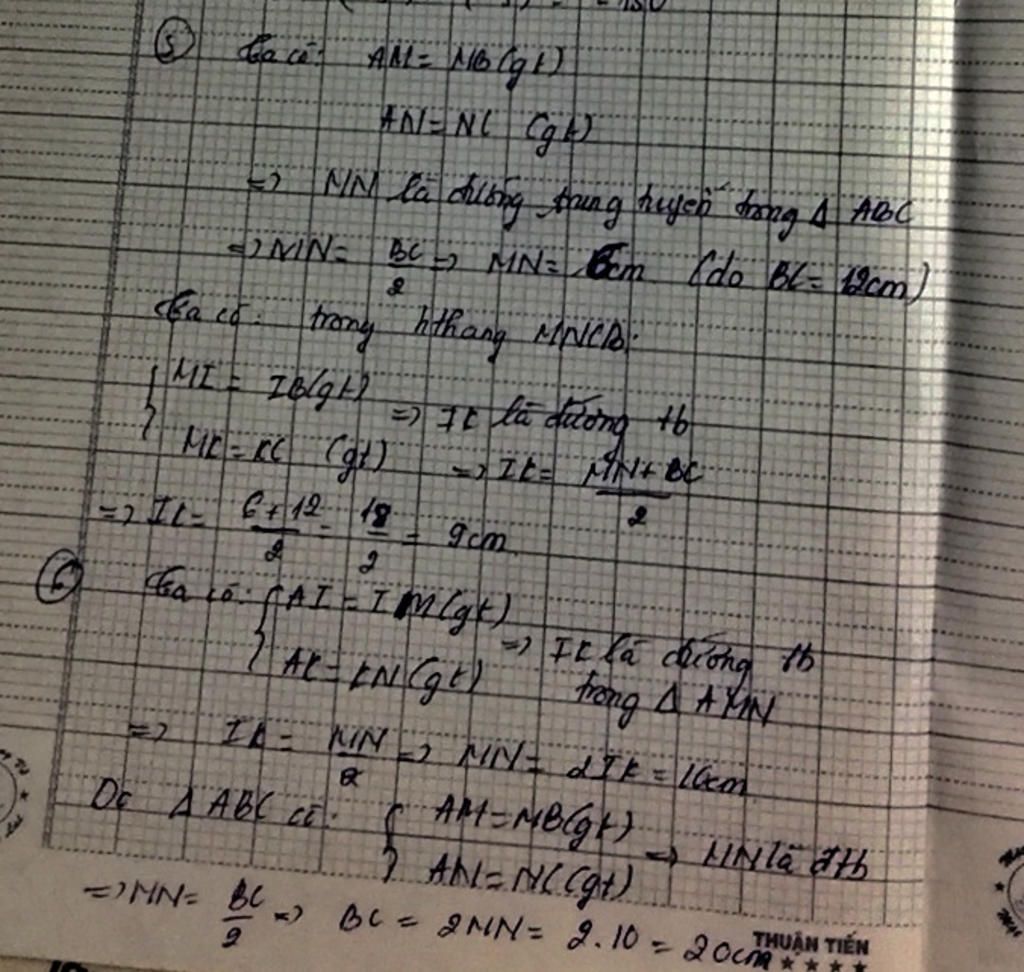 = -150
5 Ta có: AM = MB (gt)
AN = NC (gt)
=> MN là đường trung huyến trong Δ ABC
=> MN = BC/2 => MN = 6cm (do BC = 12cm)
Ta có: trong hthang MNCB:
{ MI = IB (gt)
=> IK là đường tb
NK = KC (gt) => IK = MN + BC/2
=> IK = 6 + 12/2 = 18/2 = 9cm
6 Ta có: { AI = IM (gt)
=> IK là đường tb
AK = KN (gt) trong Δ AMN
=> IK = MN/2 => MN = 2IK = 10cm
Δ ABC có: { AM = MB (gt)
=> MN là đtb
AN = NC (gt)
=> MN = BC/2 => BC = 2MN = 2.10 = 20cm
THUẬN TIẾN